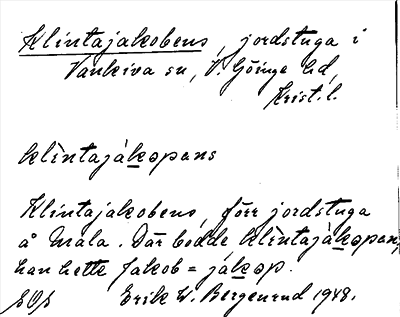 Klintajakobens, jordstuga i
Vankiva sn, V. Göinge hd,
Krist. l.
klìntajákəpans
Klintajakobens, förr jordstuga
å Mala. Där bodde klìntajàkəpan,
han hette Jakob = jákəp.
Erik W. Bergenrud 1948.